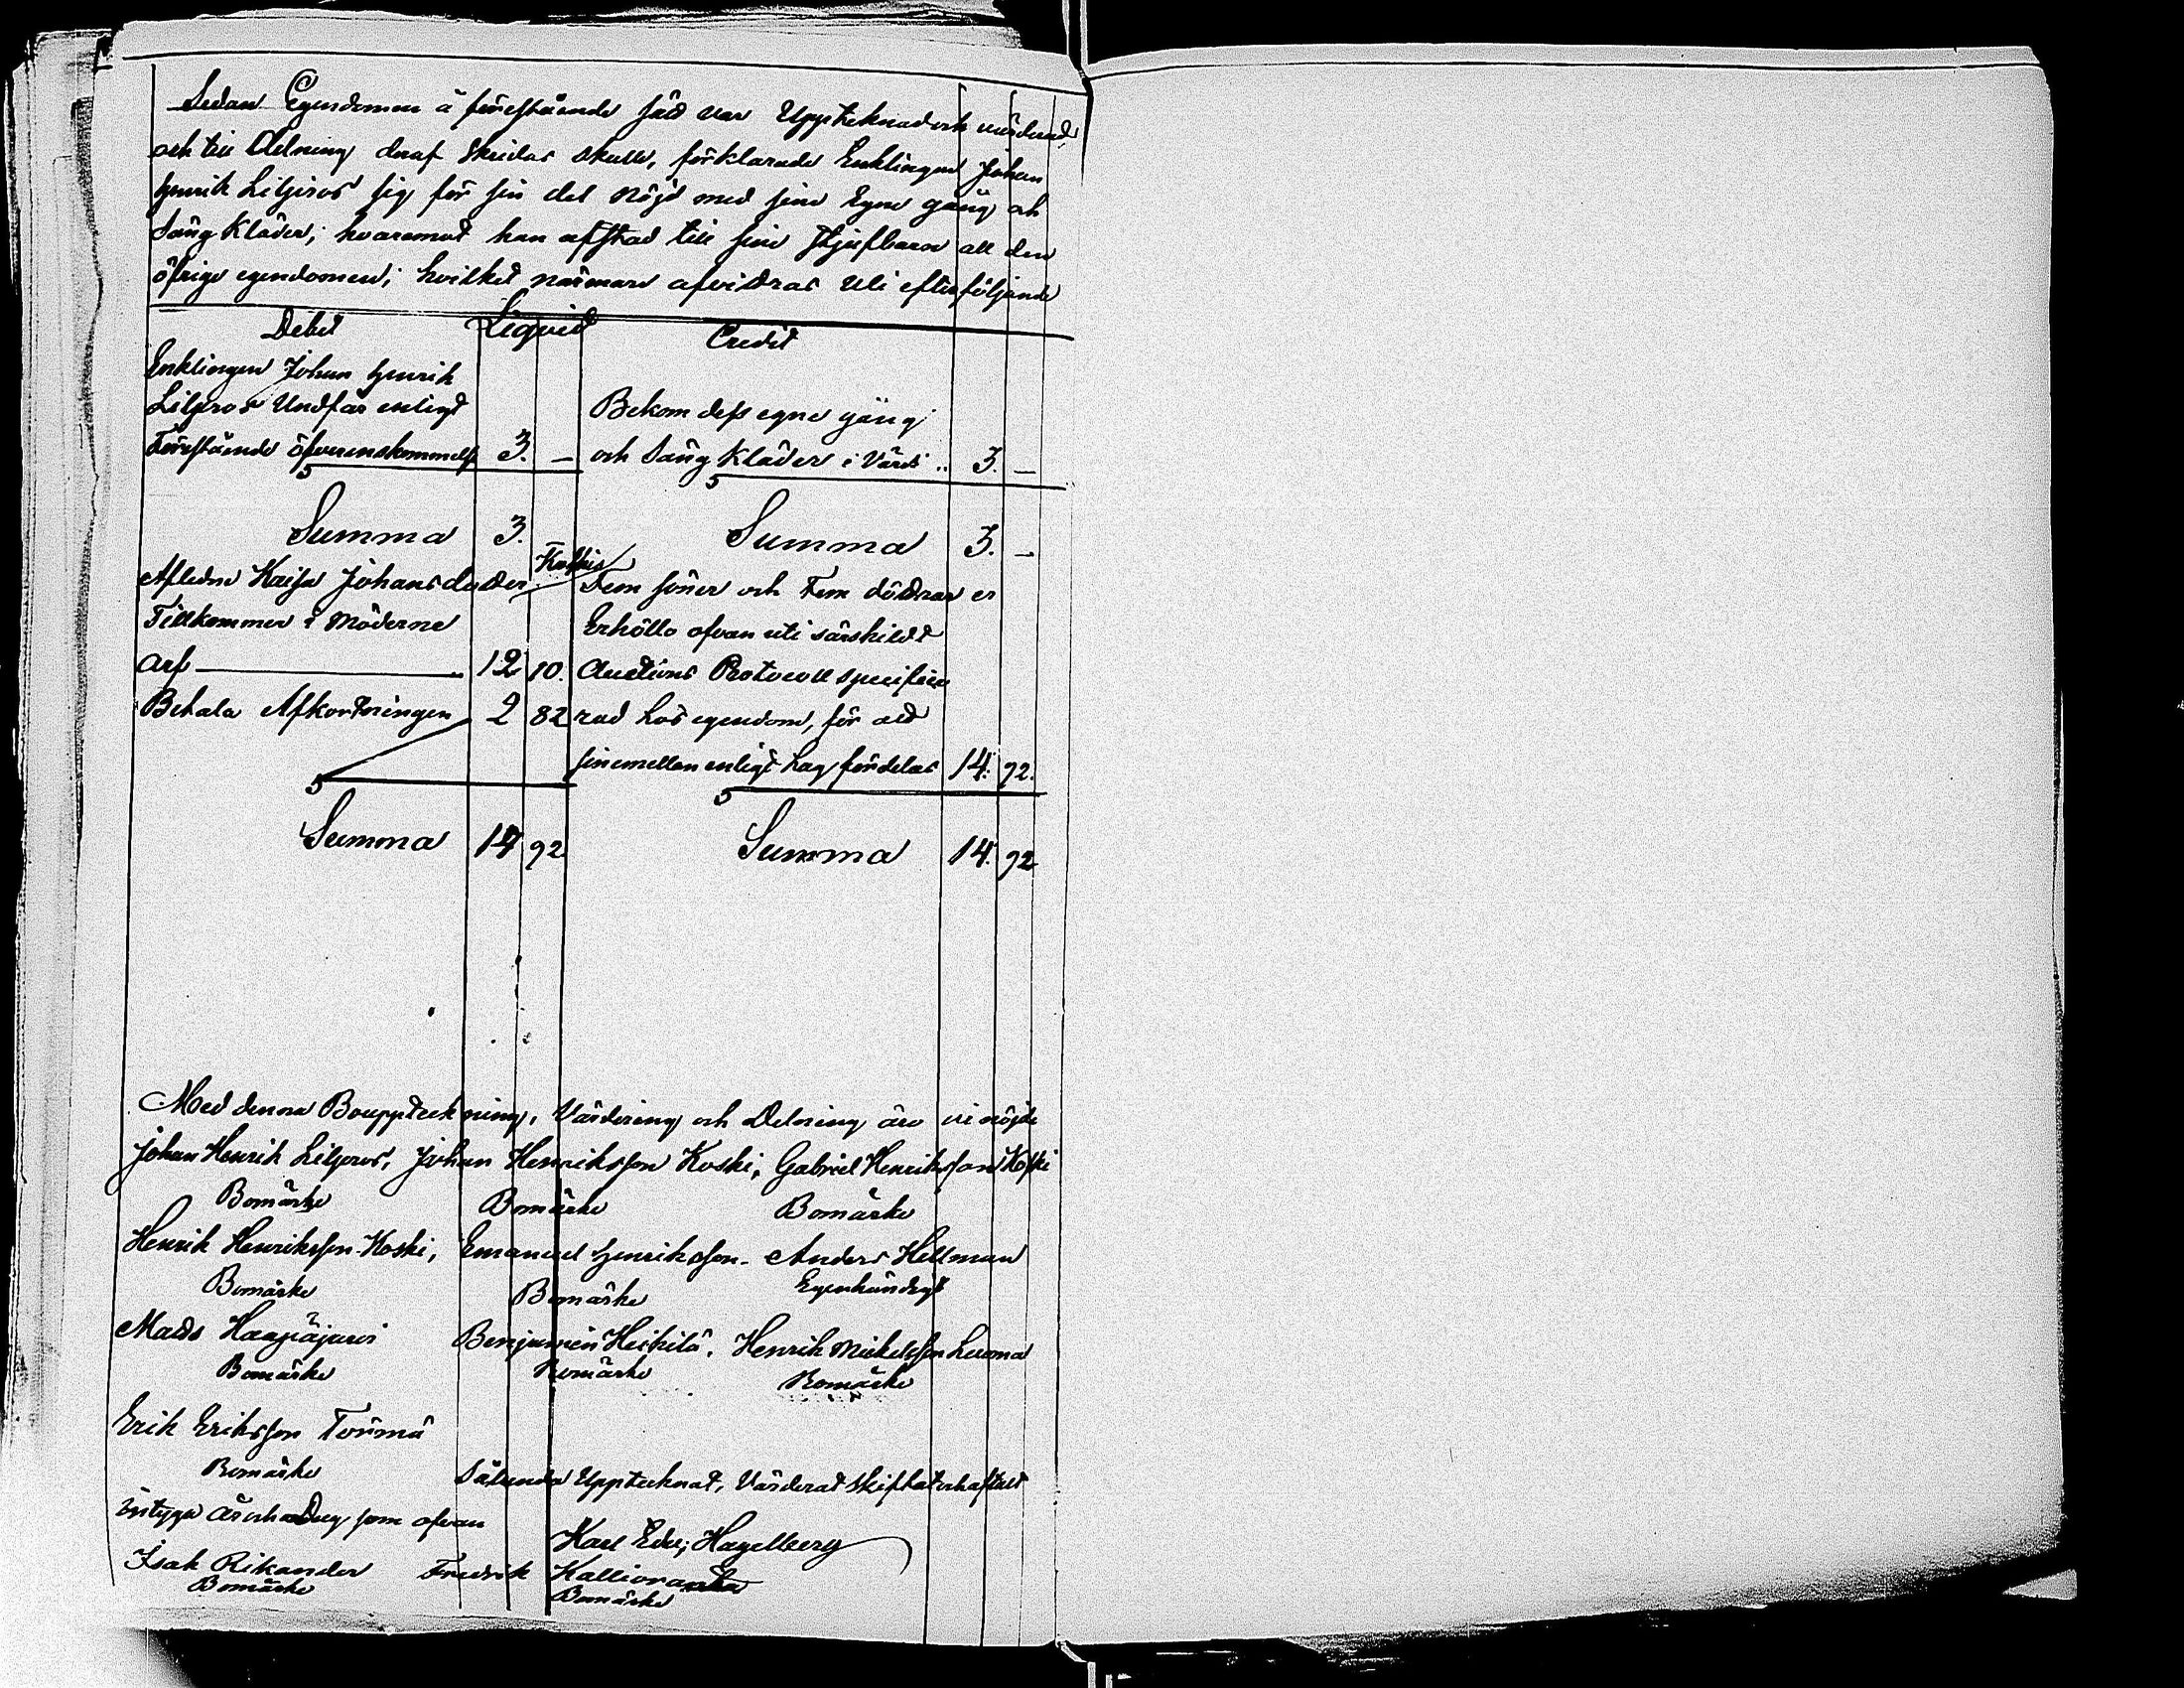 Sedan Egendomen å förestående sätt var Upptecknad och värderad,
och till Delning deraf skridas skulle, förklarade Enklingen Johan
Henrik Liljeros sig för sin del nöjd med sine Egne gång och
Säng Kläder; hvaremot han afstod till sine Stjufbarn all den
öfrige egendomen; hvilket närmare utvidras uti efterföljande
Debet Liqvid Credit
Enklingen Johan Henrik
Liljeros Undfår enligt
Förestående öfverenskommelse 3. —
Bekom dess egne gång
och Säng Kläder i Värde .. 3. —
Summa 3.
Summa 3. —
Aflidne Kaisa Johansdotter Koskis
Tillkommer i Möderne
arf 12 10.
Betala Afkortningen 2 82
Fem söner och Fem döttrar er
Erhölls ofvan uti särskildt
Auctions Protocoll specifice
rad lös egendom, för att
sinemellan enligt Lag fördelas 14. 92.
Summa 14 92
Summa 14. 92
Med denna Bouppteckning, Värdering och Delning äro vi nöjde
Johan Henrik Liljeros, Johan Henriksson Koski, Gabriel Henriksson Koski
Bomärke Bomärke Bomärke
Henrik Henriksson Koski, Emanuel Henriksson. Anders Hellman
Bomärke Bomärke Egenhändigt
Mads Haapajärvi Benjamin Heikilä. Henrik Mickelsson Luoma
Bomärke Bomärke Bomärke
Erik Eriksson Törmä
Bomärke
Sålunda Upptecknat, Värderat Skiftat och aftalt
intyga År och Dag som ofvan
Karl Edv; Hagelberg
Isak Rikander Fredrik Kallioranta
Bomärke Bomärke